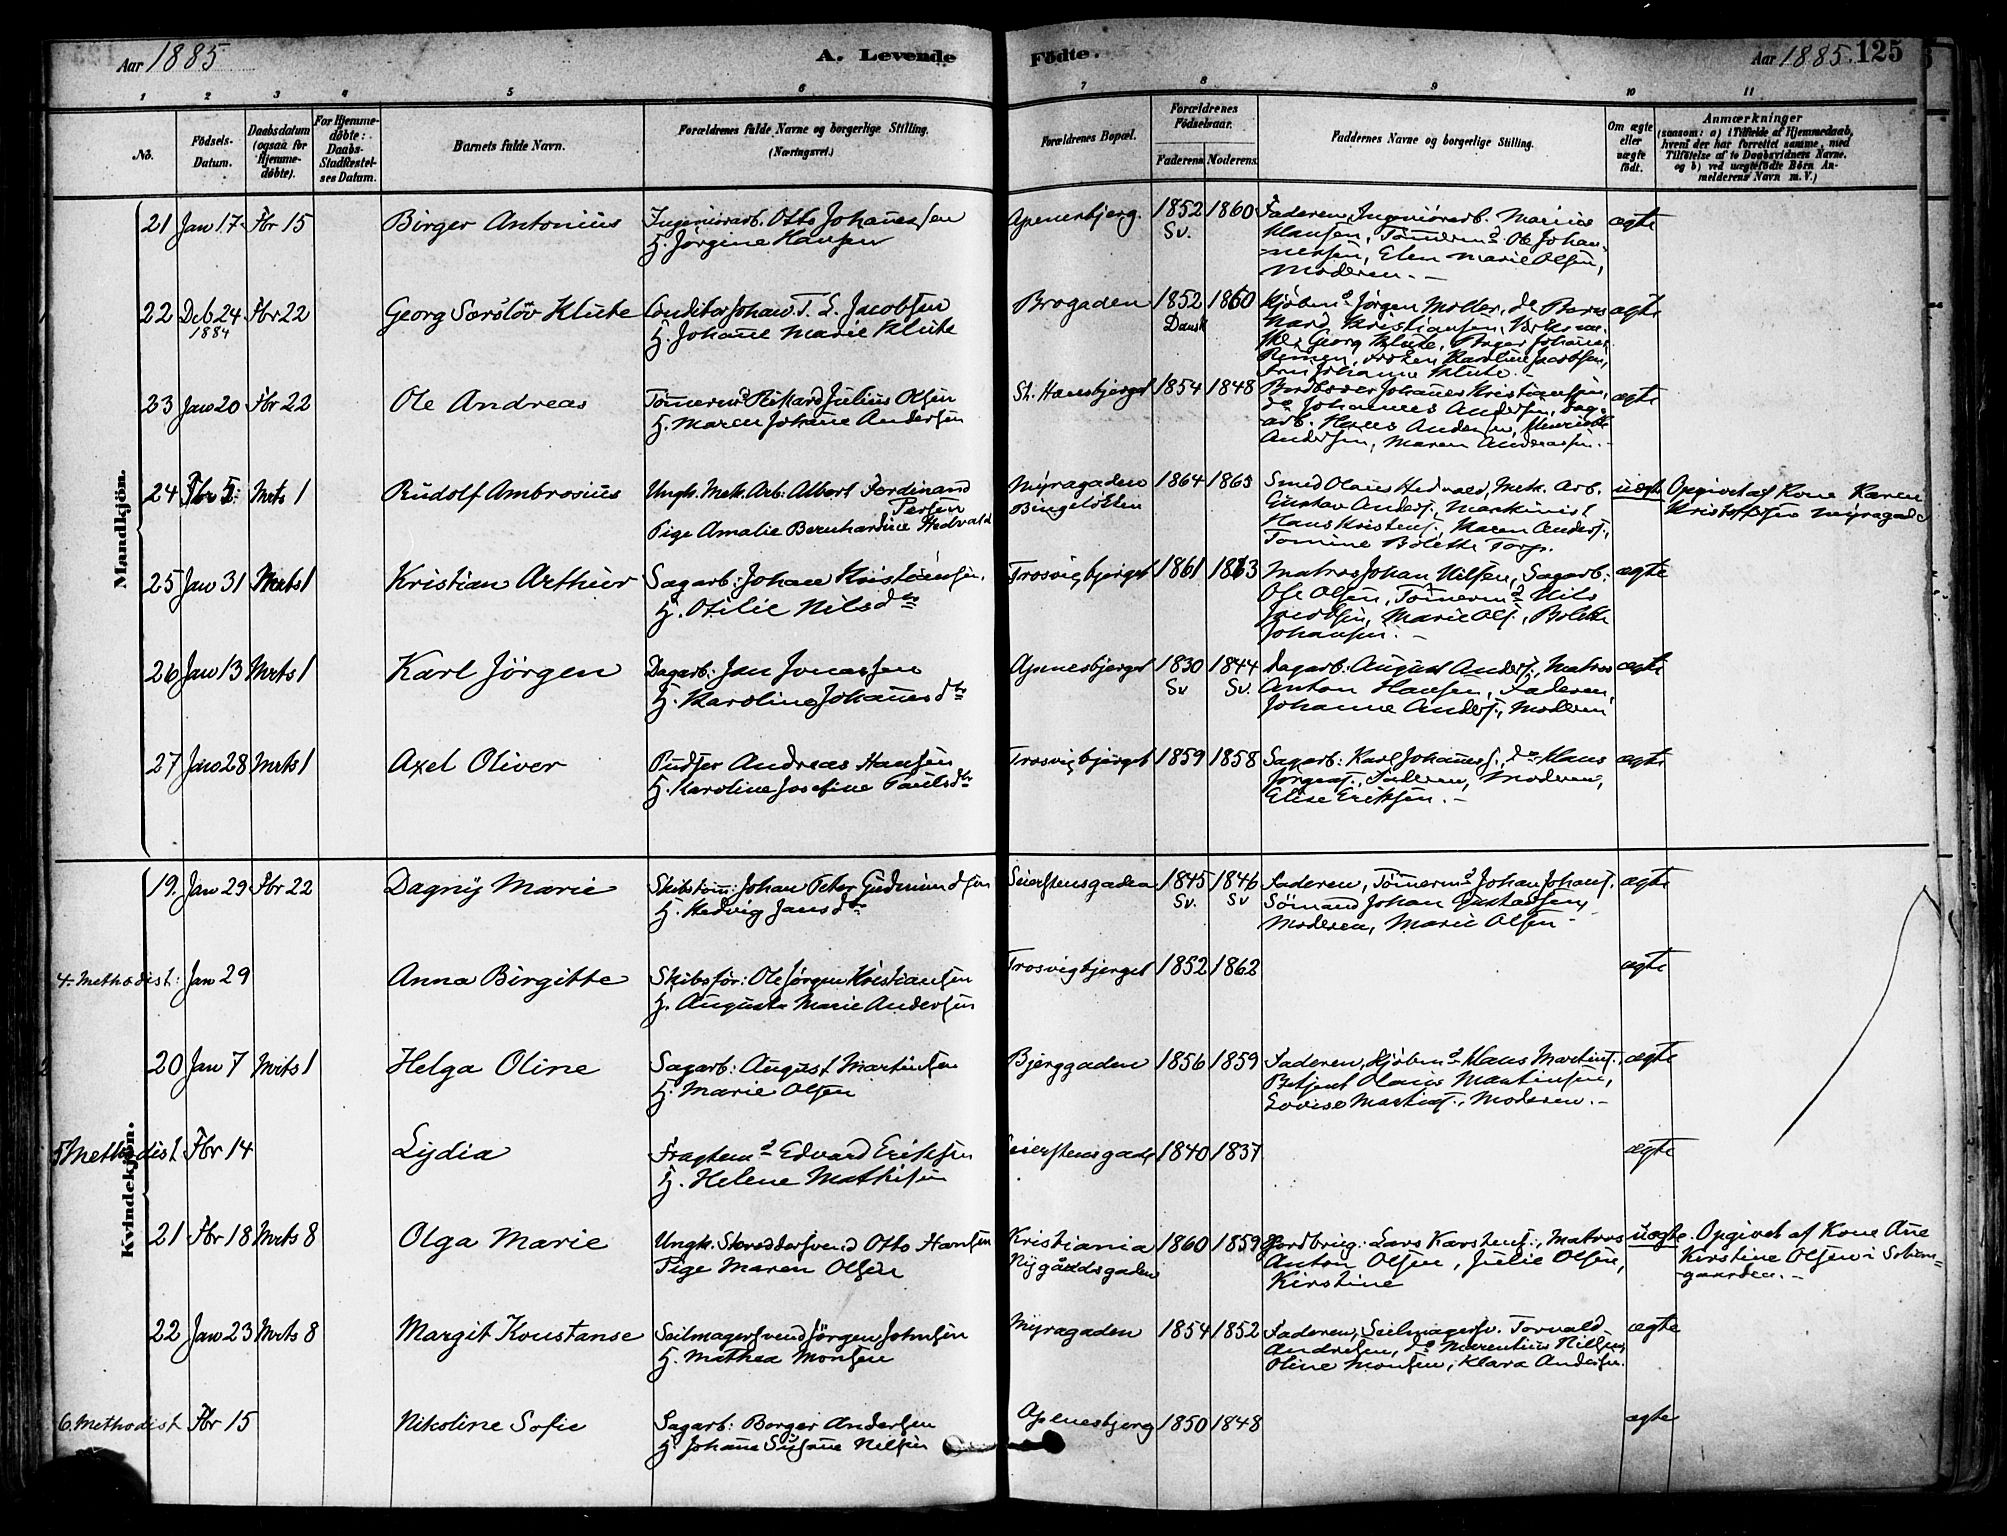 Aar 1885
A. Levende
Fødte.
Aar 1885.
125
1 2 3 4 5 6 7 8 9 10 11
No.
Fødsels-
Datum.
Daabsdatum
(ogsaa for
Hjemme-
døbte).
For Hjemme-
døbte:
Daabs-
Stadfæstel-
ses Datum.
Barnets fulde Navn.
Forældrenes fulde Navne og borgerlige Stilling.
(Næringsvei.)
Forældrenes Bopæl.
Forældrenes
Fødselsaar.
Faderens Moderens
Faddernes Navne og borgerlige Stilling.
Om ægte
eller
uægte
født.
Anmærkninger
(saasom: a) i Tilfælde af Hjemmedaab,
hvem der har forrettet samme, med
Tilføielse af to Daabsvidners Navne.
og b) ved uægtefødte Børn An-
melderens Navn m. V.)
Mandkjøn.
21 Jan 17 Fbr 15 Birger Antonius
Ingeniørarb. Otto Johannessen
H. Jørgine Hansen
Apenesbjerg. 1852 1860
Sv.
Faderen, Ingeniørarb. Marius
Hansen, Tømmermd Ole Johan-
nessen, Elen Marie Olsen,
Moderen. -
ægte
22 Deb 24 Fbr 22 Georg Sørsløv Klute
1884
Conditor Johan T. L. Jacobsen
H. Johanne Marie Klute
Brogaden 1852 1860
Dansk
Kjøbmd Jørgen Møller, do
Kristiansen,
Georg Klute, Bager Johannes
Frøken Karoline Jacobsen,
Fru Johanne Klute. -
ægte
23 Jan 20 Fbr 22 Ole Andreas
Tømmermd Rikard Julius Olsen
H. Maren Johanne Andersen
St. Hansbjerget 1854 1848
Johannes Kristiansen,
do Johannes Andersen, Sag-
arb. Hans Andersen, Henriette
Andersen, Maren Andreassen. -
ægte
24 Fbr 5 Mrts 1 Rudolf Ambrosius
Ungk. Mek. Arb: Albert Ferdinand
Pige Amalie Bernhardine Hedvald
Myragaden 1864 1865
Smed Olaus Hedvald, Mek. Arb.
Gustav Anders., Maskinist
Hans Kristens., Maren Anders.,
Tomine Bolette Torp.
uægte
Opgivet af Kone Karen
Kristoffersen Myragade
25 Jan 31 Mrts 1 Kristian Arthur
Sagarb: Johan Kristiansen,
H. Otilie Nilsdtr
Trosvigbjerget 1861 1863
Matros Johan Nilsen, Sagarb:
Ole Olsen, Tømmermd Nils
Jacobsen, Marie Ols., Bolette
Johansen. -
ægte
26 Jan 13 Mrts 1 Karl Jørgen
Dagarb: Jan Jonassen
H. Karoline Johannesdtr
Apenesbjerget 1830 1844
Sv Sv.
Dagarb: August Anders., Matros
Anton Hansen, Faderen,
Johanne Anders., Moderen
ægte
27 Jan 28 Mrts 1 Axel Oliver
Pudser Andreas Hansen
H. Karoline Josefine Paulsdtr
Trosvigbjerget 1859 1858
Sagarb: Karl Johanness., do Hans
Jørgens., Faderen, Moderen,
Elise Eriksen. -
ægte
Kvindekjøn.
19. Jan 29 Fbr 22 Dagny Marie
Skibstøm: Johan Peter Gudmundsen
H. Hedvig Jansdtr
Seierstensgaden 1845 1846
Sv. Sv
Faderen, Tømmermd Johan Johans.
Sømand Johan Gustavsen,
Moderen, Marie Olsen -
ægte
4. Methodist: Jan 29 Anna Birgitte
Skibsfør: Ole Jørgen Kristiansen
H. Augusta Marie Andersen
Trosvigbjerget 1852 1862
ægte
20 Jan 7 Mrts 1 Helga Oline
Sagarb: August Martinsen
H. Marie Olsen
Bjerggaden 1856 1859
Faderen, Kjøbmd Hans Martins.,
Betjent Olaus Martinsen,
Lovise Martins., Moderen. -
ægte
5 Methodist Fbr 14 Lydia
Fragtemd Edvard Eriksen
H. Helene Mathisen
Seierstensgade 1840 1837
ægte
21 Fbr 18 Mrts 8 Olga Marie
Ungk. Skreddersvend Otto Hansen
Pige Maren Olsen
Kristiania 1860 1859
Nygaardsgaden
Lars Karstens., Matros
Anton Olsen, Julie Olsen,
Kirstine
uægte
Opgivet af Kone Ane
Kirstine Olsen i
gaarden. -
22 Jan 23 Mrts 8 Margit Konstanse
Seilmagersvend Jørgen Johnsen
H. Mathea Monsen
Myragaden 1854 1852
Faderen, Seilmagersv. Torvald
Andresen, do Marentius Nilsen,
Oline Monsen, Klara Andersen.
ægte
6. Methodist Fbr 15 Nikoline Sofie
Sagarb: Borger Andersen
H. Johanne Susanne Nilsen
Apenesbjerg 1850 1848
ægte